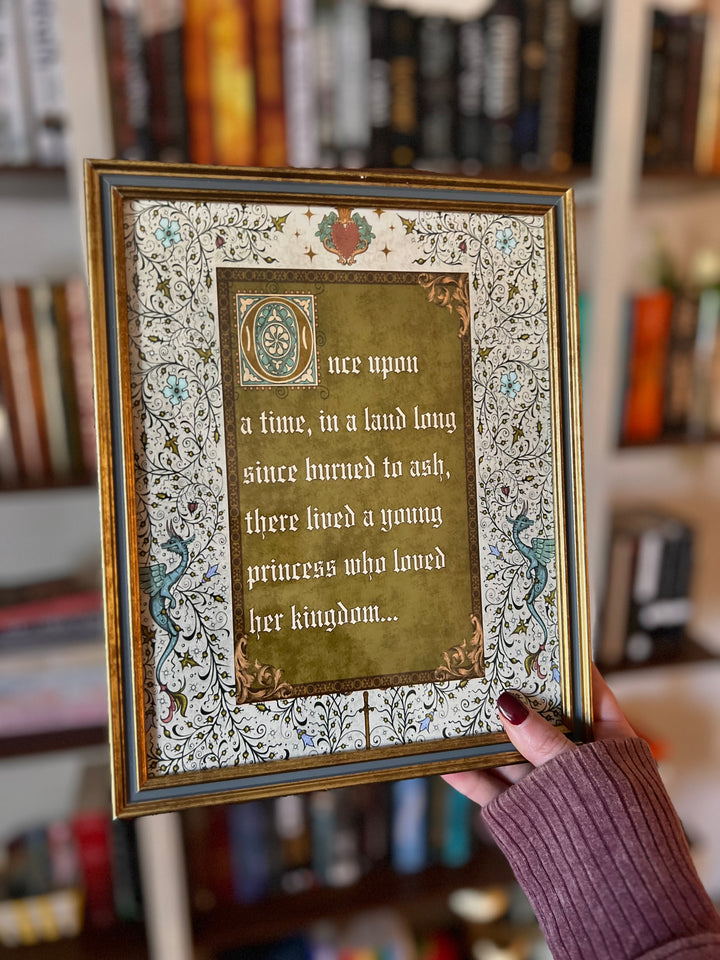 Once upon
a time, in a land long
since burned to ash,
there lived a young
princess who loved
her kingdom...